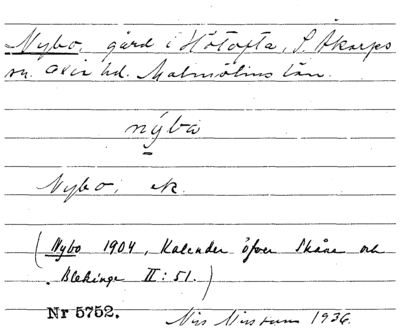 Nybo, gård i Hötofta, S. Åkarps
sn. Oxie hd. Malmöhus län.
nýba
Nybo, ek.
(Nybo 1904, Kalender öfver Skåne och
Blekinge II: 51.)
Nr 5752. Nils Nilsson 1936.